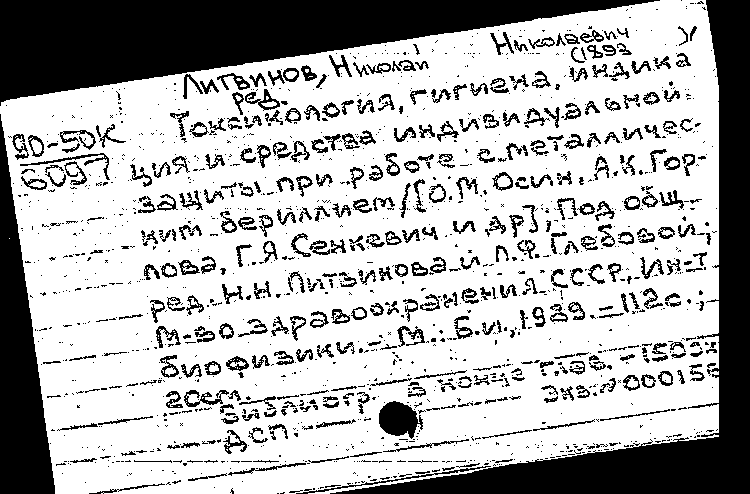 Литвинов, Николай Николаевич
ред. (1893
90-50к
6097
Токсикология, гигиена, индика
ция и средства индивидуальной
защиты при работе с металличес-
ким бериллием/[О.М. Осин, А.К. Гор-
лова, Г.Я. Сенкевич и др]; Под общ.
ред. Н.Н. Литвинова и Л.Ф. Глебовой;
М-во здравоохранения СССР, Ин-т
биофизики. - М.: Б.и., 1989. - 112с.;
20см.
Библиогр. в конце глав. - 150эк
ДСП. Экз.№000158